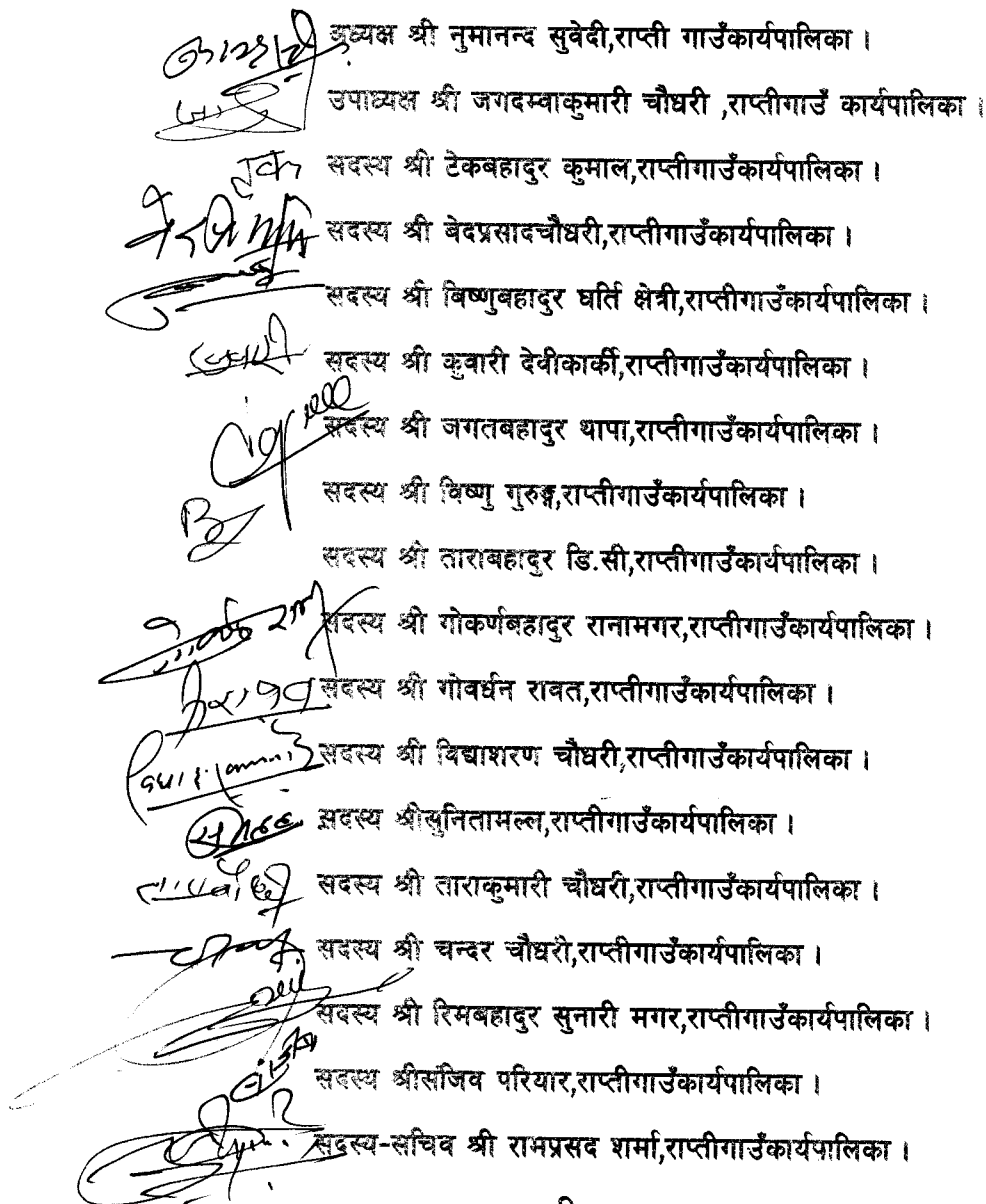 अध्यक्ष श्री नुमानन्द सुवेदी,राप्ती गाउँकार्यपालिका ।
उपाध्यक्ष श्री जगदम्वाकुमारी चौधरी ,राप्तीगाउँ कार्यपालिका ।
सदस्य श्री टेकबहादुर कुमाल,राप्तीगाउँकार्यपालिका ।
सदस्य श्री बेदप्रसादचौधरी,राप्तीगाउँकार्यपालिका ।
सदस्य श्री बिष्णुबहादुर घर्ति क्षेत्री,राप्तीगाउँकार्यपालिका ।
सदस्य श्री कुवारी देवीकार्की,राप्तीगाउँकार्यपालिका ।
सदस्य श्री जगतबहादुर थापा,राप्तीगाउँकार्यपालिका ।
सदस्य श्री विष्णु गुरुङ्ग,राप्तीगाउँकार्यपालिका ।
सदस्य श्री ताराबहादुर डि.सी,राप्तीगाउँकार्यपालिका ।
सदस्य श्री गोकर्णबहादुर रानामगर,राप्तीगाउँकार्यपालिका ।
सदस्य श्री गोवर्धन रावत,राप्तीगाउँकार्यपालिका ।
सदस्य श्री विद्याशरण चौधरी,राप्तीगाउँकार्यपालिका ।
सदस्य श्रीसुनितामल्ल,राप्तीगाउँकार्यपालिका ।
सदस्य श्री ताराकुमारी चौधरी,राप्तीगाउँकार्यपालिका ।
सदस्य श्री चन्दर चौधरी,राप्तीगाउँकार्यपालिका ।
सदस्य श्री रिमबहादुर सुनारी मगर,राप्तीगाउँकार्यपालिका ।
सदस्य श्रीसंजिव परियार,राप्तीगाउँकार्यपालिका ।
सदस्य-सचिव श्री रामप्रसद शर्मा,राप्तीगाउँकार्यपालिका ।